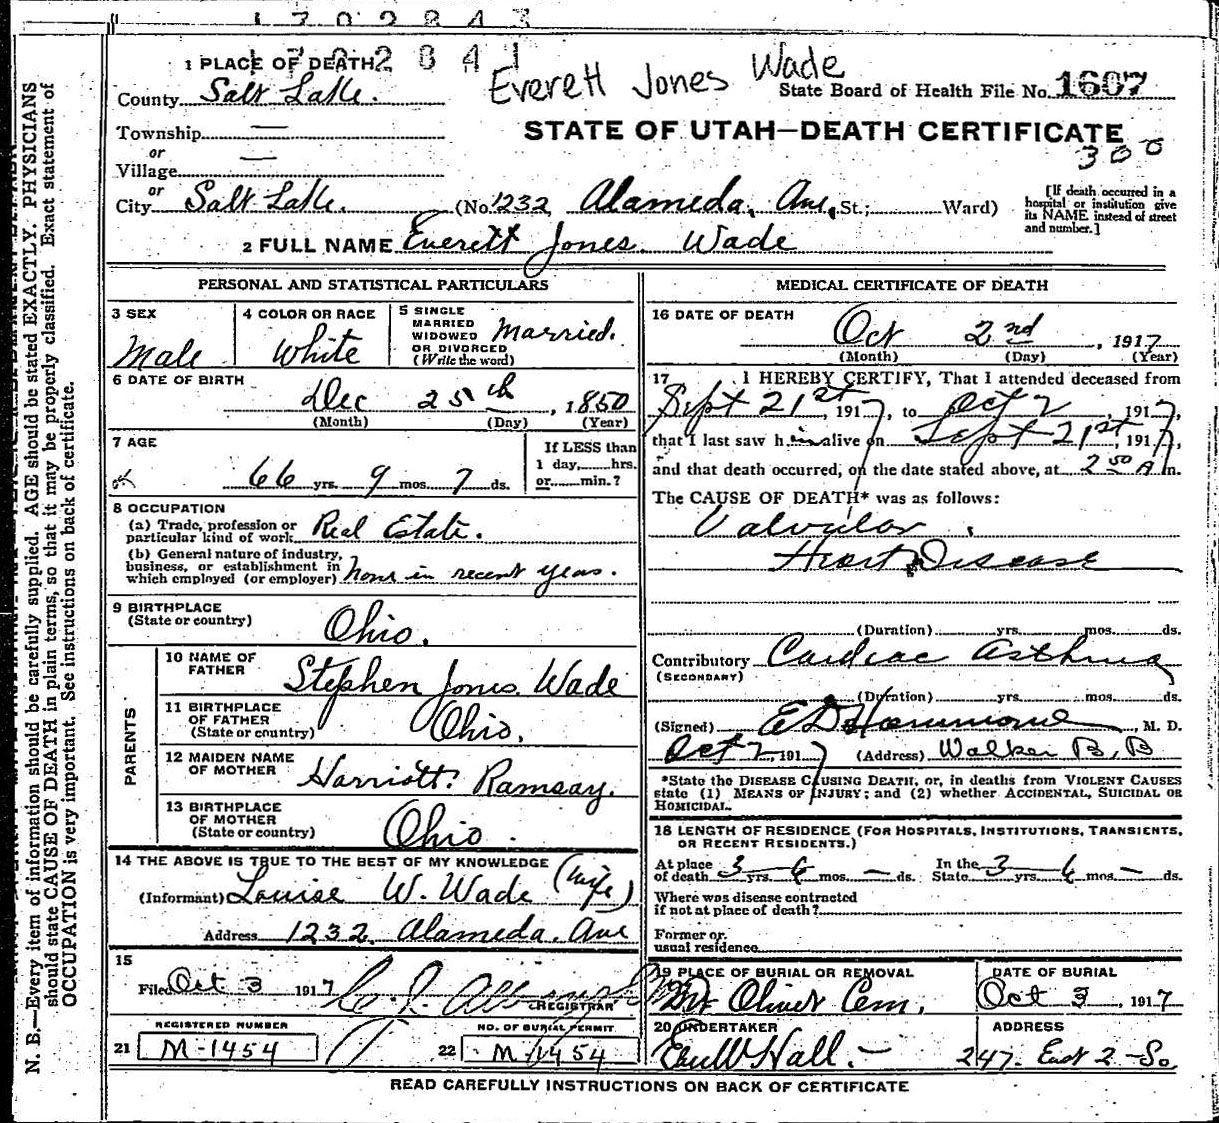 1702843
1702841
Everett Jones Wade
1 PLACE OF DEATH
County Salt Lake.
State Board of Health File No. 1607
Township —
STATE OF UTAH—DEATH CERTIFICATE
300
or
Village —
or
City Salt Lake. (No. 1232 Alameda, Ave, St.; Ward)
[If death occurred in a
hospital or institution give
its NAME instead of street
and number.]
2 FULL NAME Everett Jones Wade
PERSONAL AND STATISTICAL PARTICULARS
3 SEX
Male
4 COLOR OR RACE
White
5 SINGLE
MARRIED
WIDOWED
OR DIVORCED
(Write the word)
Married.
6 DATE OF BIRTH
Dec 25th, 1850
(Month) (Day) (Year)
7 AGE
66 yrs. 9 mos. 7 ds.
If LESS than
1 day, hrs.
or min.?
8 OCCUPATION
(a) Trade, profession or
particular kind of work Real Estate.
(b) General nature of industry,
business, or establishment in
which employed (or employer) none in recent years.
9 BIRTHPLACE
(State or country)
Ohio.
PARENTS
10 NAME OF
FATHER
Stephen Jones Wade
11 BIRTHPLACE
OF FATHER
(State or country)
Ohio.
12 MAIDEN NAME
OF MOTHER
Harriott Ramsay.
13 BIRTHPLACE
OF MOTHER
(State or country)
Ohio.
14 THE ABOVE IS TRUE TO THE BEST OF MY KNOWLEDGE
(Informant) Louise W. Wade (wife)
Address 1232 Alameda. Ave
15
Filed Oct 3 1917
REGISTRAR
REGISTERED NUMBER
21 M-1454
NO. OF BURIAL PERMIT
22 M 1454
MEDICAL CERTIFICATE OF DEATH
16 DATE OF DEATH
Oct 2nd, 1917
(Month) (Day) (Year)
17 I HEREBY CERTIFY, That I attended deceased from
Sept 21st, 1917, to Oct 2, 1917,
that I last saw him alive on Sept 21st, 1917,
and that death occurred, on the date stated above, at 2 50 A m.
The CAUSE OF DEATH* was as follows:
Valvular
Heart Disease
(Duration) yrs. mos. ds.
Contributory Cardiac Asthma
(SECONDARY)
(Duration) yrs. mos. ds.
(Signed) E D Hammond, M. D.
Oct 2, 1917 (Address) Walker B. B
*State the DISEASE CAUSING DEATH, or, in deaths from VIOLENT CAUSES
state (1) MEANS OF INJURY; and (2) whether ACCIDENTAL, SUICIDAL OR
HOMICIDAL.
18 LENGTH OF RESIDENCE (FOR HOSPITALS, INSTITUTIONS, TRANSIENTS,
OR RECENT RESIDENTS.)
At place
of death 3 yrs. 6 mos. — ds.
In the
State 3 yrs. 6 mos. — ds.
Where was disease contracted
if not at place of death?
Former or
usual residence
19 PLACE OF BURIAL OR REMOVAL
Mt Olivet Cem.
DATE OF BURIAL
Oct 3, 1917
20 UNDERTAKER
Hall.
ADDRESS
247. East 2-So
READ CAREFULLY INSTRUCTIONS ON BACK OF CERTIFICATE
N. B.—Every item of information should be carefully supplied. AGE should be stated EXACTLY. PHYSICIANS
should state CAUSE OF DEATH in plain terms, so that it may be properly classified. Exact statement of
OCCUPATION is very important. See instructions on back of certificate.